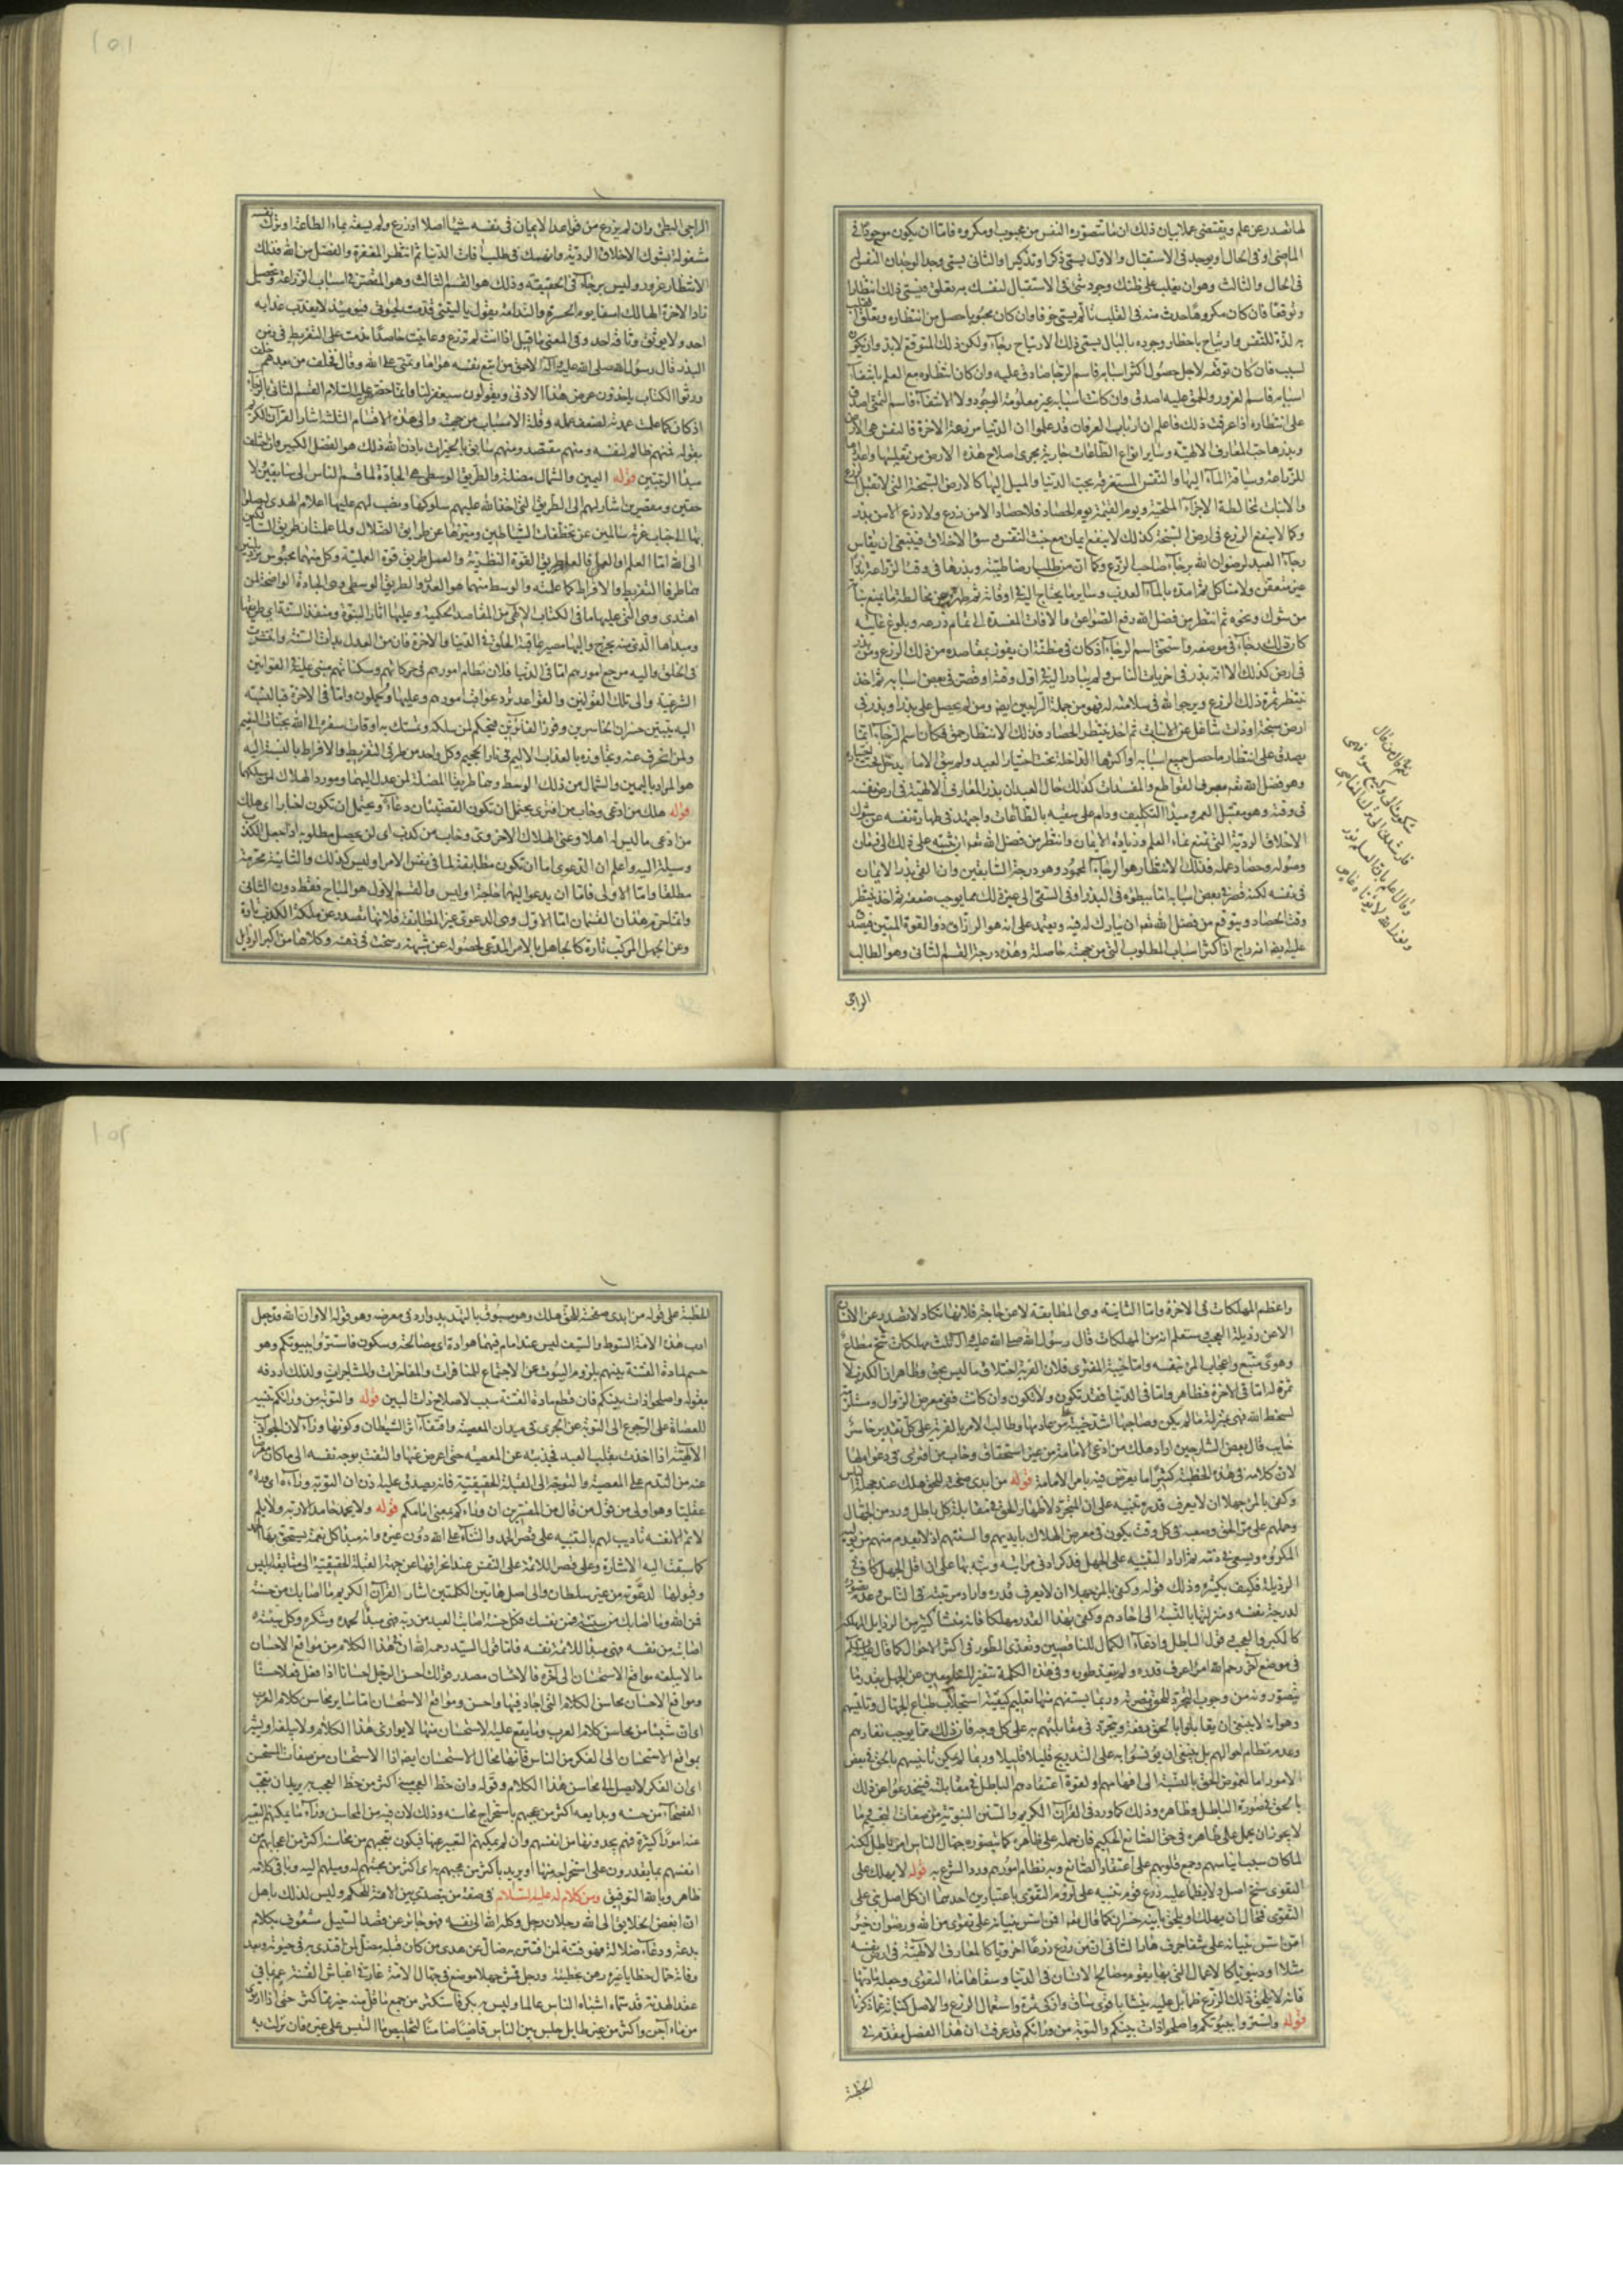 لها تصدر عن علم ويقتضي عملا بيان ذلك ان ما تتصوره النفس من محبوب او مكروه فاما ان يكون موجودا في
الماضي او في الحال او يوجد في الاستقبال والاول يسمى ذكرا وتذكيرا والثاني يسمى وجدا لوجدان النفس له
في الحال والثالث وهو ان يغلب على ظنك وجود شئ في الاستقبال لنفسك به تعلق فيسمى ذلك انتظارا
وتوقعا فان كان مكروها حدث منه في القلب تألم يسمى خوفا وان كان محبوبا حصل من انتظاره وتعلق القلب
به لذة للنفس وارتياح باخطار وجوده بالبال يسمى ذلك الارتياح رجاء ولكن ذلك المتوقع لا بد وان يكون
لسبب فان كان توقعه لاجل حصول اكثر اسبابه فاسم الرجا صادق عليه وان كان انتظاره مع العلم بانتفاء
اسبابه فاسم الغرور والحمق عليه اصدق وان كانت اسبابه غير معلومة الوجود ولا الانتفاء فاسم التمني اصدق
على انتظاره اذا عرفت ذلك فاعلم ان ارباب العرفان قد علموا ان الدنيا مزرعة الاخرة فالنفس هي الارض
وبذرها حب المعارف الالهية وساير انواع الطاعات جارية مجرى اصلاح هذه الارض من تقليبها واعدادها
للزراعة وسياقة الماء اليها والنفس المستغرقة بحب الدنيا والميل اليها كالارض السبخة التي لا تقبل الزرع
والانبات لمخالطة الاجزاء الملحية ويوم القيمة يوم الحصاد فلا حصاد الا من زرع ولا زرع الا من بذر
وكما لا ينفع الزرع في ارض السبخة كذلك لا ينفع ايمان مع خبث النفس وسؤ الاخلاق فينبغي ان يقاس
رجاء العبد لرضوان الله برجاء صاحب الزرع وكما ان من طلب ارضا طيبة وبذرها في وقت الزراعة بذرا
غير متعفن ولا متاكل ثم امده بالماء العذب وساير ما يحتاج اليه في اوقاته ثم طهره عن مخالطة ما يمنع نباته
من شوك ونحوه ثم انتظر من فضل الله رفع الصواعق والافات المفسدة الى تمام زرعه وبلوغ غايته
كان ذلك رجاء في موضعه واستحق اسم الرجاء اذ كان في مظنة ان يفوز بمقاصده من ذلك الزرع ومن بذر
في ارض كذلك الا انه بذر في اخريات الناس ولم يبادر اليه في اول وقته او قصر في بعض اسبابه ثم اخذ
ينتظر ثمرة ذلك الزرع ويرجو الله في سلامته له فهو من جملة الراجين ايضا ومن لم يحصل على بذر او بذر في
ارض سبخة او ذات شاغل عن الانبات ثم اخذ ينتظر الحصاد فذلك الانتظار حمق فكان اسم الرجاء انما
يصدق على انتظار ما حصل جميع اسبابه او اكثرها الداخلة تحت اختيار العبد ولم يبق الا ما لا يدخل تحت اختياره
وهو فضل الله تعم بصرف القواطع والمفسدات كذلك حال العبد ان بذر المعارف الالهية في ارض نفسه
في وقته وهو مقتبل العمر ومبدأ التكليف ودام على سقيه بالطاعات واجتهد في طهارة نفسه عن شوك
الاخلاق الردية التي تمنع نماء العلم وزيادة الايمان وانتظر من فضل الله تعم ان يثبته على ذلك الى زمان
وصوله وحصاد عمله فذلك الانتظار هو الرجاء المحمود وهو درجة السابقين وان القى بذر الايمان
في نفسه لكنه قصر في بعض اسبابه اما ببطؤه في البذر او في السقي الى غير ذلك مما يوجب ضعفه ثم اخذ ينتظر
وقت الحصاد ويتوقع من فضل الله تعم ان يبارك له فيه ويعتمد على انه هو الرزاق ذو القوة المتين فيصدق
عليه ايضا انه راج اذ اكثر اسباب المطلوب التي من جهته حاصلة وهذه درجة القسم الثاني وهو الطالب
الراجي
شكوت الى وكيع سوء فهمي
وقال اعلم بان العلم نور
ونور الله لا يؤتاه عاصي
الراجي البطئ وان لم يزرع من قواعد الايمان في نفسه شيئا اصلا او زرع ولم يسقه بماء الطاعة او ترك نفسه
مشغولة بشوك الاخلاق الردية وانهمك في طلب آفات الدنيا ثم انتظر المغفرة والفضل من الله فذلك
الانتظار غرور وليس برجاء في الحقيقة وذلك هو القسم الثالث وهو المقصر في اسباب الزراعة وتحصيل
زاد الاخرة الهالك اسفا يوم الحسرة والندامة يقول يا ليتني قدمت لحيوتي فيومئذ لا يعذب عذابه
احد ولا يوثق وثاقه احد وفي المعنى ما قيل اذا انت لم تزرع وعاينت حاصدا ندمت على التفريط في زمن
البذر قال رسول الله صلى الله عليه وآله الاحمق من اتبع نفسه هواها وتمنى على الله وقال فخلف من بعدهم خلف
ورثوا الكتاب ياخذون عرض هذا الادنى ويقولون سيغفر لنا وانما خص عليه السلام القسم الثاني بالرجاء
اذ كان كما علمت عمدته لضعف عمله وقلة الاسباب من جهته والى هذه الاقسام الثلثة اشار القرآن الكريم
بقوله فمنهم ظالم لنفسه ومنهم مقتصد ومنهم سابق بالخيرات باذن الله ذلك هو الفضل الكبير وان اختلف
مبدأ الرتبتين قوله اليمين والشمال مضلة والطريق الوسطى هي الجادة لما قسم الناس الى سابقين لا
حقين ومقصرين اشار لهم الى الطريق التي اخذ الله عليهم سلوكها ونصب لهم عليها اعلام الهدى ليصلوا
بها الى جناب عزته سالمين عن تخطفات الشياطين وميزها عن طرايق الضلال ولما علمت ان طريق السالكين
الى الله اما العلم او العمل فالعلم طريق القوة النظرية والعمل طريق قوة العملية وكل منهما محبوس برذيلتين
هما طرفا التفريط والافراط كما علمته والوسط منهما هو العدل والطريق الوسطى وهي الجادة الواضحة لمن
اهتدى وهي التي عليها ما في الكتاب الالهي من المقاصد الحكمية وعليها آثار النبوة ومنفذ السنة اي طريقها
ومبداها الذي منه يخرج واليها مصير عاقبة الخلق في الدنيا والاخرة فان من العدل بدأت السنة وانتشرت
في الخلق واليه مرجع امورهم اما في الدنيا فلان نظام امورهم في حركاتهم وسكناتهم مبني عليه في القوانين
الشرعية والى تلك القوانين والقواعد ترد عواقب امورهم وعليها يحملون واما في الاخرة فبالنسبة
اليه يتبين خسران الخاسرين وفوز الفائزين فيحكم لمن سلكه وتمسك به اوقات سفره الى الله بجنات النعيم
ولمن انحرف عنه وتجاوزه بالعذاب الاليم في نار الجحيم وكل واحد من طرفي التفريط والافراط بالنسبة اليه
هو المراد باليمين والشمال من ذلك الوسط وهما طريقا المضلة لمن عدل اليهما ومورد الهلاك لمن سلكهما
قوله هلك من ادعى وخاب من افترى يحتمل ان تكون القضيتان دعاء ويحتمل ان تكون اخبارا اي هلك
من ادعى ما ليس له اهلا وعنى الهلاك الاخروي وخاب من كذب اي لن يحصل مطلوبه اذا جعل الكذب
وسيلة اليه واعلم ان الدعوى اما ان تكون مطابقة لما في نفس الامر او ليس كذلك والثانية محرمة
مطلقا واما الاولى فاما ان يدعو اليها حاجة او ليس والقسم الاول هو المباح فقط دون الثاني
وانما حرم هذان القسمان اما الاول وهي الدعوى غير المطابقة فلانها تصدر عن ملكة الكذب تارة
وعن الجهل المركب تارة كالجاهل بالامر المدعي لحصوله عن شبهة رسخت في ذهنه وكلاهما من اكبر الرذايل
واعظم المهلكات في الاخرة واما الثانية وهي المطابقة لا عن حاجة فلانها تكاد لا تصدر عن الانسان
الا عن رذيلة العجب وستعلم انه من المهلكات قال رسول الله صلى الله عليه وآله ثلث مهلكات شح مطاع
وهوى متبع واعجاب المرء بنفسه واما خيبة المفتري فلان الفرية اختلاق ما ليس بحق وظاهر ان الكذب لا
ثمرة له اما في الاخرة فظاهر واما في الدنيا فقد تكون ولا تكون وان كانت ففي معرض الزوال ومستلزمة
لسخط الله فهي بمنزلة ما لم يكن وصاحبها اشد خيبة من عادمها وطالب الامر بالفرية على كل تقدير خاسر
خايب قال بعض الشارحين اراد هلك من ادعى الامامة من غير استحقاق وخاب من افترى في دعواه لها
لان كلامه في هذه الخطبة كثيرا ما يعرض فيه بامر الامامة قوله من ابدى صفحته للحق هلك عند جهلة الناس
وكفى بالمرء جهلا ان لا يعرف قدره تنبيه على ان المتجرد لاظهار الحق في مقابلة كل باطل ورد من الجهال
وحملهم على مر الحق وصعبه في كل وقت يكون في معرض الهلاك بايديهم والسنتهم اذ لا يعدم منهم من يوليه
المكروه ويسعى في ذمه ثم اراد التنبيه على الجهل فذكر ادنى مراتبه ونبه بها على ان اقل الجهل كاف في
الرذيلة فكيف بكثيره وذلك قوله وكفى بالمرء جهلا ان لا يعرف قدره واراد مرتبته في الناس وعدم تصوره
لدرجة نفسه ومنزلتها بالنسبة الى احادهم وكفى بهذا القدر مهلكا فانه منشأ كثير من الرذايل المهلكة
كالكبر والعجب وقول الباطل وادعاء الكمال للناقصين وتعدي الطور في اكثر الاحوال كما قال
في موضع آخر رحم الله امرأ عرف قدره ولم يتعد طوره وفي هذه الكلمة تنفير للسامعين عن الجهل بقدر ما
يتصورونه من وجوب التجرد للحق ونصرته وربما يستفهم منها تعليم كيفية استجلاب طباع الجهال وتاليفهم
وهو انه لا ينبغي ان يقابلوا بالحق دفعة ويتجرد في مقابلتهم به على كل وجه فان ذلك مما يوجب نفارهم
وعدم نظام احوالهم بل ينبغي ان يؤنسوا به على التدريج قليلا قليلا وربما لم يمكن تانيسهم بالحق في بعض
الامور اما لغموض الحق بالنسبة الى افهامهم او لقوة اعتقادهم الباطل في مقابلته فيخدعوا عن ذلك
بالحق في صورة الباطل وظاهره وذلك كما ورد في القرآن الكريم والسنن النبوية من صفات التجسيم وما
لا يجوز ان يحمل على ظاهره في حق الصانع الحكيم فان حمله على ظاهره كما يتصوره جهال الناس امر باطل لكنه
لما كان سببا لايناسهم وجمع قلوبهم على اعتقاد الصانع وبه نظام امورهم ورد الشرع به قوله لا يهلك على
التقوى سنخ اصل ولا يظمأ عليه زرع قوم تنبيه على لزوم التقوى باعتبارين احدهما ان كل اصل بني على
التقوى فمحال ان يهلك او يلحق بانيه خسران كما قال تعم افمن اسس بنيانه على تقوى من الله ورضوان خير
امن اسس بنيانه على شفا جرف هار الثاني ان من زرع زرعا اخرويا كالمعارف الالهية في ارض نفسه
مثلا او دنيويا كالاعمال التي بها يقوم مصالح الانسان في الدنيا وسقاها ماء التقوى وجعله مادتها
فانه لا يلحق ذلك الزرع ظمأ بل عليه ينشأ باقوى ساق وازكى ثمرة واستعمال الزرع والاصل كناية عما ذكرنا
قوله واستتروا ببيوتكم واصلحوا ذات بينكم والتوبة من ورائكم قد عرفت ان هذا الفصل مقدم في
الخطبة
للخطبة على قوله من ابدى صفحته للحق هلك وهو مسبوق بالتهديد وارد في معرضه وهو قوله الا وان الله قد جعل
ادب هذه الامة السوط والسيف ليس عند امام فيهما هوادة اي مصالحة وسكون فاستتروا ببيوتكم وهو
حسم لمادة الفتنة بينهم بلزوم البيوت عن الاجتماع للمنافرات والمفاخرات والمشاجرات ولذلك اردفه
بقوله واصلحوا ذات بينكم فان قطع مادة الفتنة سبب لاصلاح ذات البين قوله والتوبة من ورائكم تنبيه
للعصاة على الرجوع الى التوبة عن الجري في ميدان المعصية واقتفاء اثر الشيطان وكونها وراء لان الجواذب
الالهية اذا اخذت بقلب العبد فجذبته عن المعصية حتى اعرض عنها والتفت بوجه نفسه الى ما كان معرضا
عنه من الندم على المعصية والتوجه الى القبلة الحقيقية فانه يصدق عليه اذن ان التوبة وراءه اي وراء
عقليا وهو اولى من قول من قال من المفسرين ان وراءكم بمعنى امامكم قوله ولا يحمد حامد الا ربه ولا يلم
لائم الا نفسه تاديب لهم بالتنبيه على قصر الحمد والثناء على الله دون غيره وانه مبدأ كل نعمة يستحق بها الحمد
كما سبقت اليه الاشارة وعلى قصر اللائمة على النفس عند انحرافها عن جهة القبلة الحقيقية الى متابعة ابليس
وقبولها لدعوته من غير سلطان والى اصل هاتين الكلمتين اشار القرآن الكريم ما اصابك من حسنة
فمن الله وما اصابك من سيئة فمن نفسك فكل حسنة اصابت العبد من ربه فهي مبدأ لحمده وشكره وكل سيئة
اصابته من نفسه فهي مبدأ للائمة نفسه فاما قول السيد رحمه الله ان في هذا الكلام من مواقع الاحسان
ما لا يبلغه مواقع الاستحسان الى آخره فالاحسان مصدر قولك احسن الرجل احسانا اذا فعل فعلا حسنا
ومواقع الاحسان محاسن الكلام التي اجاد فيها واحسن ومواقع الاستحسان اما ساير محاسن كلام العرب
اي ان شيئا من محاسن كلام العرب وما يقع عليه الاستحسان منها لا يوازي هذا الكلام ولا يبلغه او يشير
بمواقع الاستحسان الى الفكر من الناس فانها محال الاستحسان ايضا اذ الاستحسان من صفات المستحسن
اي ان الفكر لا يصل الى محاسن هذا الكلام وقوله وان حظ العجب منه اكثر من حظ العجب به يريد ان تعجب
الفصحاء من حسنه وبدايعه اكثر من عجبهم باستخراج محاسنه وذلك لان فيه من المحاسن وراء ما يمكنهم التعبير
عنه امورا كثيرة فهم يجدونها من انفسهم وان لم يمكنهم التعبير عنها فيكون تعجبهم من محاسنه اكثر من اعجابهم من
انفسهم بما يقدرون على استخراجه منها او يريد باكثر من عجبهم به اي اكثر من محبتهم له وميلهم اليه وباقي كلامه
ظاهر وبالله التوفيق ومن كلام له عليه السلام في صفة من يتصدى بين الامة للحكم وليس لذلك باهل
ان ابغض الخلايق الى الله رجلان رجل وكله الله الى نفسه فهو جائر عن قصد السبيل مشغوف بكلام
بدعة ودعاء ضلالة فهو فتنة لمن افتتن به ضال عن هدى من كان قبله مضل لمن اقتدى به في حيوته وبعد
وفاته حمال خطايا غيره رهن بخطيئته ورجل قمش جهلا موضع في جهال الامة غار في اغباش الفتنة عم بما في
عقد الهدنة قد سماه اشباه الناس عالما وليس به بكر فاستكثر من جمع ما قل منه خير مما كثر حتى اذا ارتوى
من ماء آجن واكثر من غير طايل جلس بين الناس قاضيا ضامنا لتخليص ما التبس على غيره فان نزلت به